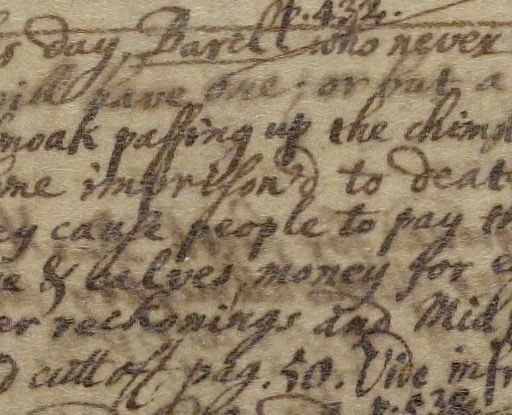 p. 432.
s day, Barell who never
will have one; or but a
smoak passing up the chimn
me imprison'd to deat
ey cause people to pay th
e & calves, money for e
er reckonings and Mid
d cutt off pag. 50. Vide infr
p. 532